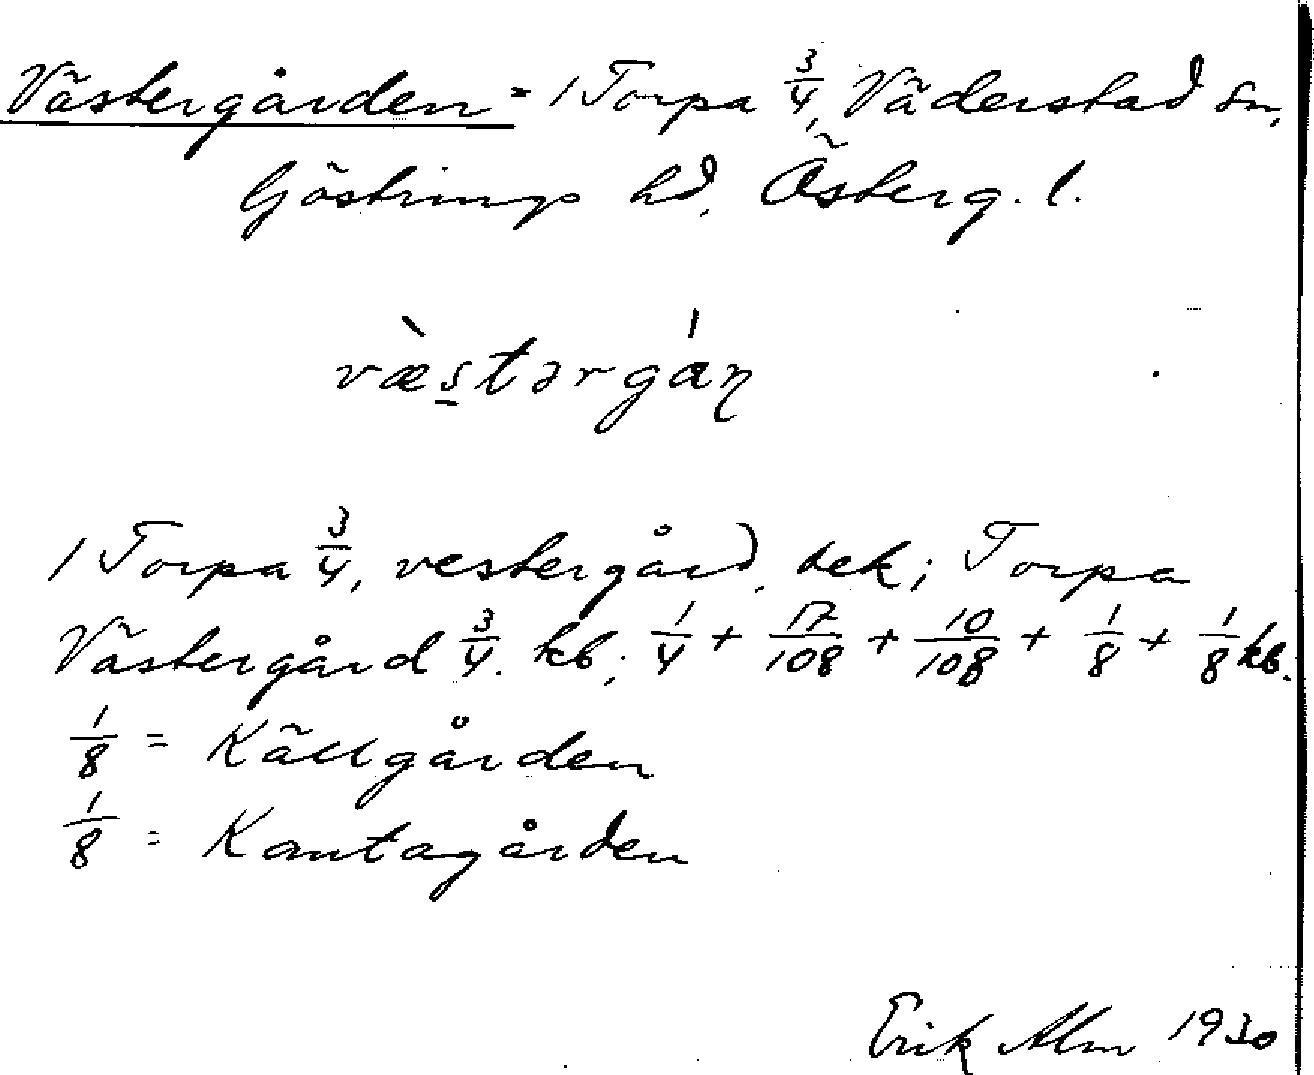 Västergården = 1 Torpa 3/4, Väderstad sn,
Göstrings hd, Österg. l.
væ̀stərgán
1 Torpa 3/4, vestergård, bek; Torpa
Västergård 3/4. kb; 1/4 + 17/108 + 10/108 + 1/8 + 1/8 kb.
1/8 = Källgården
1/8 = Kantagården
Erik Alm 1930